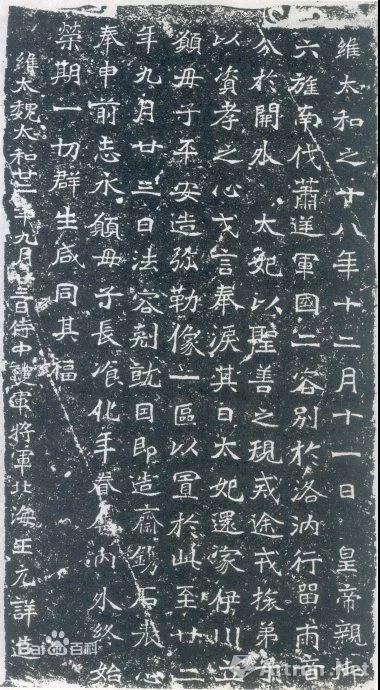 維太和之十八年十二月十一日皇帝親
六旌南伐蕭逆軍國二容別於洛汭行留兩音
分於闕外太妃以聖善之規戒途戎旅弟子
以資孝之心戈言奉淚其日太妃還家伊川立
願母子平安造弥勒像一區以置於此至廿二
年九月廿三日法容剋就因即造齋鐫石表心
奉申前志永願母子長飡化年眷屬內外終始
榮期一切群生咸同其福
維大魏太和廿二年九月廿三日侍中護軍將軍北海王元詳造
Bai百科
Artron.Net